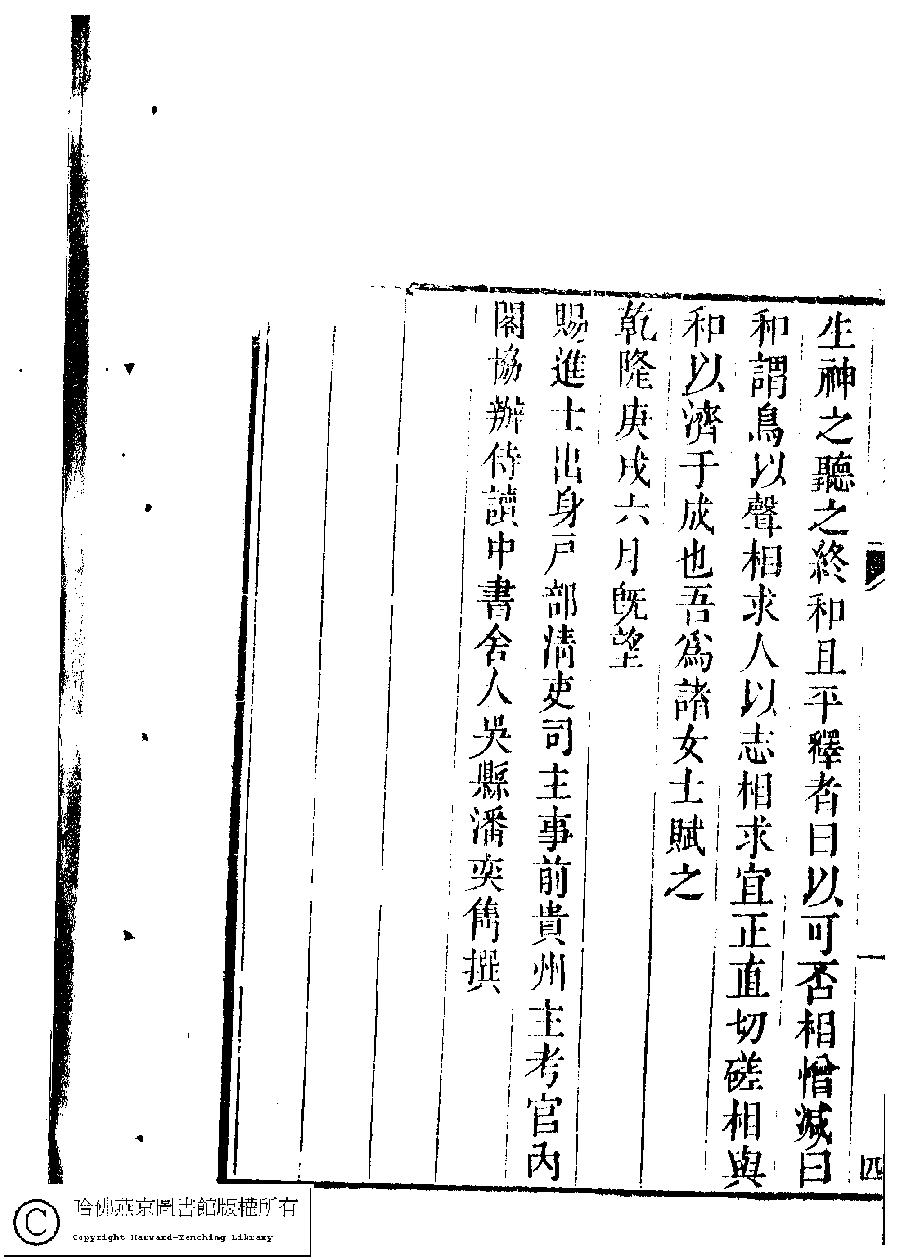 生神之聽之終和且平釋者曰以可否相憎減曰
和謂鳥以聲相求人以志相求宜正直切磋相與
和以濟于成也吾爲諸女士賦之
乾隆庚戌六月旣望
賜進士出身戶部清吏司主事前貴州主考官內
閣協辦侍讀中書舍人吳縣潘奕雋撰
四
哈佛燕京圖書館版權所有
Copyright Harvard-Yenching Library